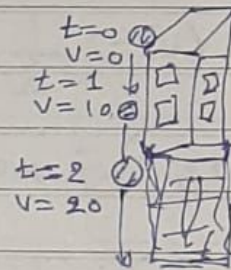 t=0
v=0
t=1
v=10
t=2
v=20